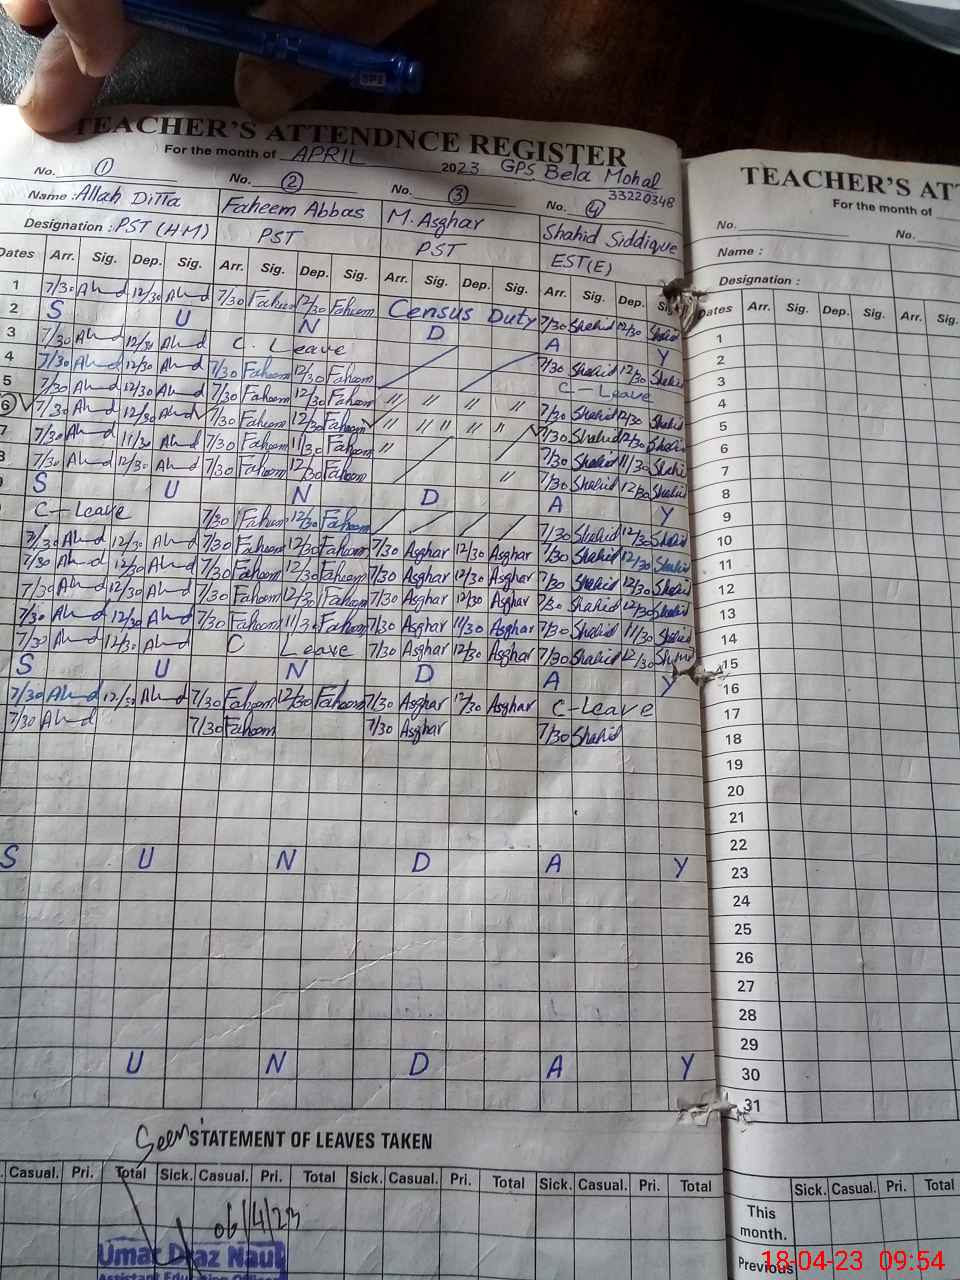 GPS
TEACHER'S ATTENDNCE REGISTER
For the month of APRIL 2023 GPS Bela Mohal
33220348
No. 1 No. 2 No. 3 No. 4
Name : Allah Ditta Faheem Abbas M. Asghar Shahid Siddique
Designation : PST (HM) PST PST EST(E)
Dates Arr. Sig. Dep. Sig. Arr. Sig. Dep. Sig. Arr. Sig. Dep. Sig. Arr. Sig. Dep. Sig.
1 7/30 12/30 7/30 Faheem 12/30 Faheem Census Duty 7/30 Shahid 12/30 Shahid
2 S U N D A Y
3 7/30 12/30 C. Leave 7/30 Shahid 12/30 Shahid
4 7/30 12/30 7/30 Faheem 12/30 Faheem C-Leave
5 7/30 12/30 7/30 Faheem 12/30 Faheem " " " " 7/30 Shahid 12/30 Shahid
6 7/30 12/30 7/30 Faheem 12/30 Faheem " " " " " 7/30 Shahid 12/30 Shahid
7 7/30 11/30 7/30 Faheem 11/30 Faheem " 7/30 Shahid 11/30 Shahid
8 7/30 12/30 7/30 Faheem 12/30 Faheem " 7/30 Shahid 12/30 Shahid
S U N D A Y
C-Leave 7/30 Faheem 12/30 Faheem 7/30 Shahid 12/30 Shahid
7/30 12/30 7/30 Faheem 12/30 Faheem 7/30 Asghar 12/30 Asghar 7/30 Shahid 12/30 Shahid
7/30 12/30 7/30 Faheem 12/30 Faheem 7/30 Asghar 12/30 Asghar 7/30 Shahid 12/30 Shahid
7/30 12/30 7/30 Faheem 12/30 Faheem 7/30 Asghar 12/30 Asghar 7/30 Shahid 12/30 Shahid
7/30 12/30 7/30 Faheem 11/30 Faheem 7/30 Asghar 11/30 Asghar 7/30 Shahid 11/30 Shahid
7/30 12/30 C Leave 7/30 Asghar 12/30 Asghar 7/30 Shahid 12/30
S U N D A Y
7/30 12/30 7/30 Faheem 12/30 Faheem 7/30 Asghar 12/30 Asghar C-Leave
7/30 7/30 Faheem 7/30 Asghar 7/30 Shahid
S U N D A Y
U N D A Y
Seen STATEMENT OF LEAVES TAKEN
Casual. Pri. Total Sick. Casual. Pri. Total Sick. Casual. Pri. Total Sick. Casual. Pri. Total
06/4/23
Umar Draz Naul
TEACHER'S AT
For the month of
No. No.
Name :
Designation :
Dates Arr. Sig. Dep. Sig. Arr. Sig.
1
2
3
4
5
6
7
8
9
10
11
12
13
14
15
16
17
18
19
20
21
22
23
24
25
26
27
28
29
30
31
Sick. Casual. Pri. Total
This
month.
Previous
18-04-23 09:54